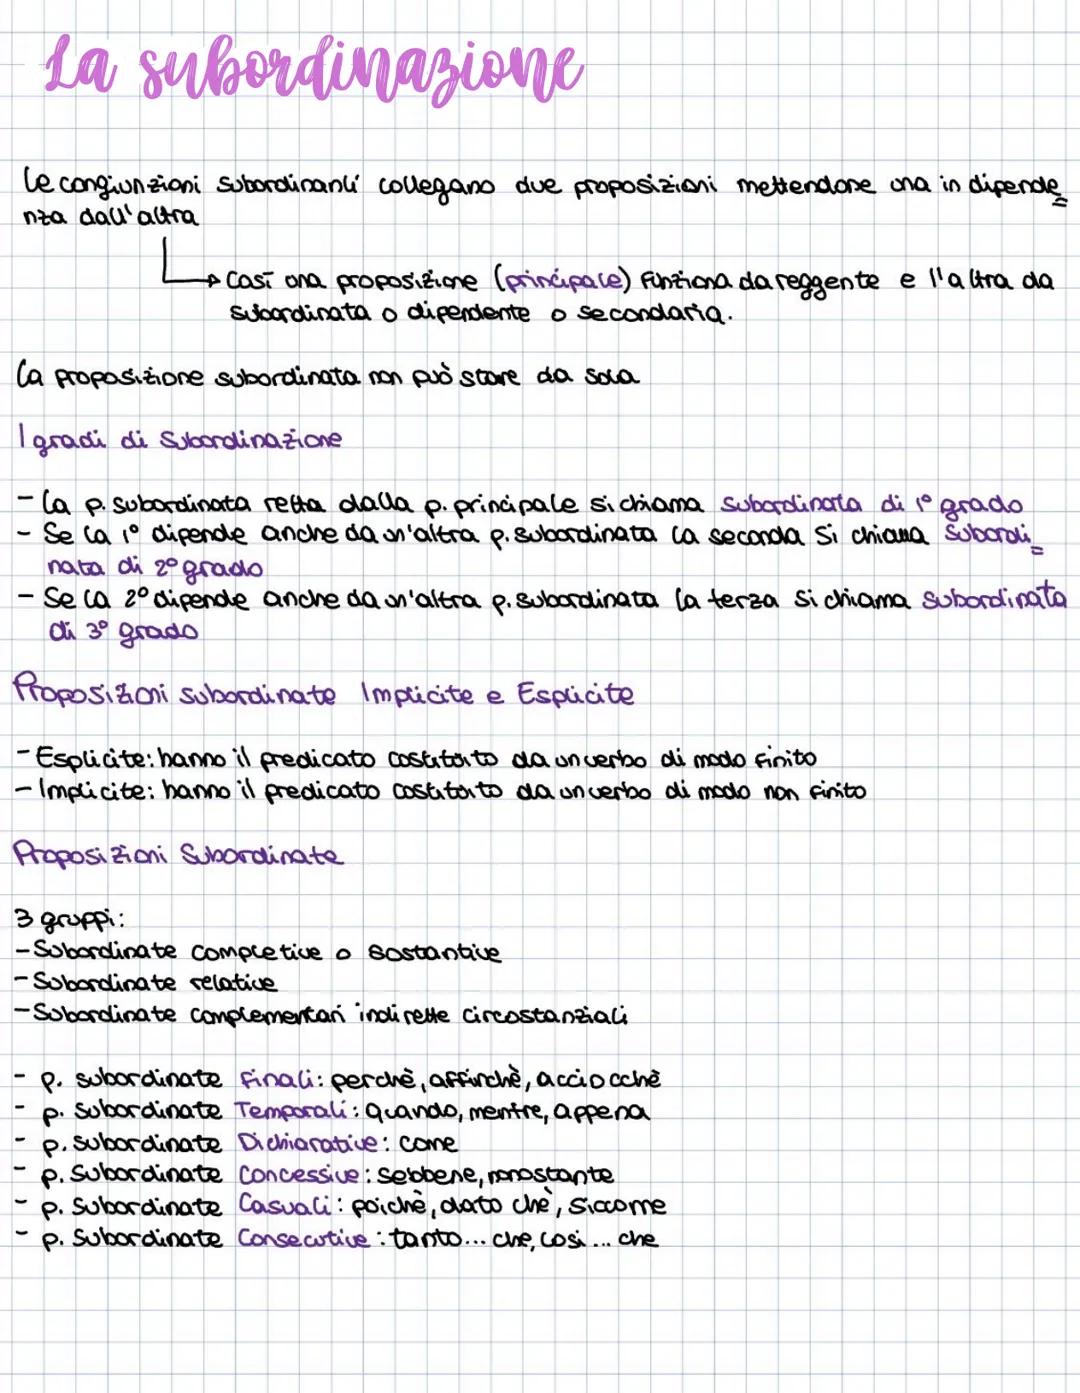 La subordinazione
Le congiunzioni subordinanti collegano due proposizioni mettendone una in dipende
nza dall'altra
→ Così una proposizione (principale) funziona da reggente e l'altra da
subordinata o dipendente o secondaria.
La proposizione subordinata non può stare da sola
I gradi di Subordinazione
- La p. subordinata retta dalla p. principale si chiama subordinata di 1° grado
- Se la 1° dipende anche da un'altra p. subordinata la seconda si chiama subordi=
nata di 2° grado
- Se la 2° dipende anche da un'altra p. subordinata la terza si chiama subordinata
di 3° grado
Proposizioni subordinate Implicite e Esplicite
- Esplicite: hanno il predicato costituito da un verbo di modo finito
- Implicite: hanno il predicato costituito da un verbo di modo non finito
Proposizioni Subordinate
3 gruppi:
- Subordinate completive o sostantive
- Subordinate relative
- Subordinate complementari indirette circostanziali
- p. subordinate Finali: perchè, affinchè, acciocchè
- p. subordinate Temporali: quando, mentre, appena
- p. subordinate Dichiarative: come
- p. subordinate Concessive: sebbene, nonostante
- p. subordinate Casuali: poichè, dato chè, siccome
- p. subordinate Consecutive: tanto... che, così... che